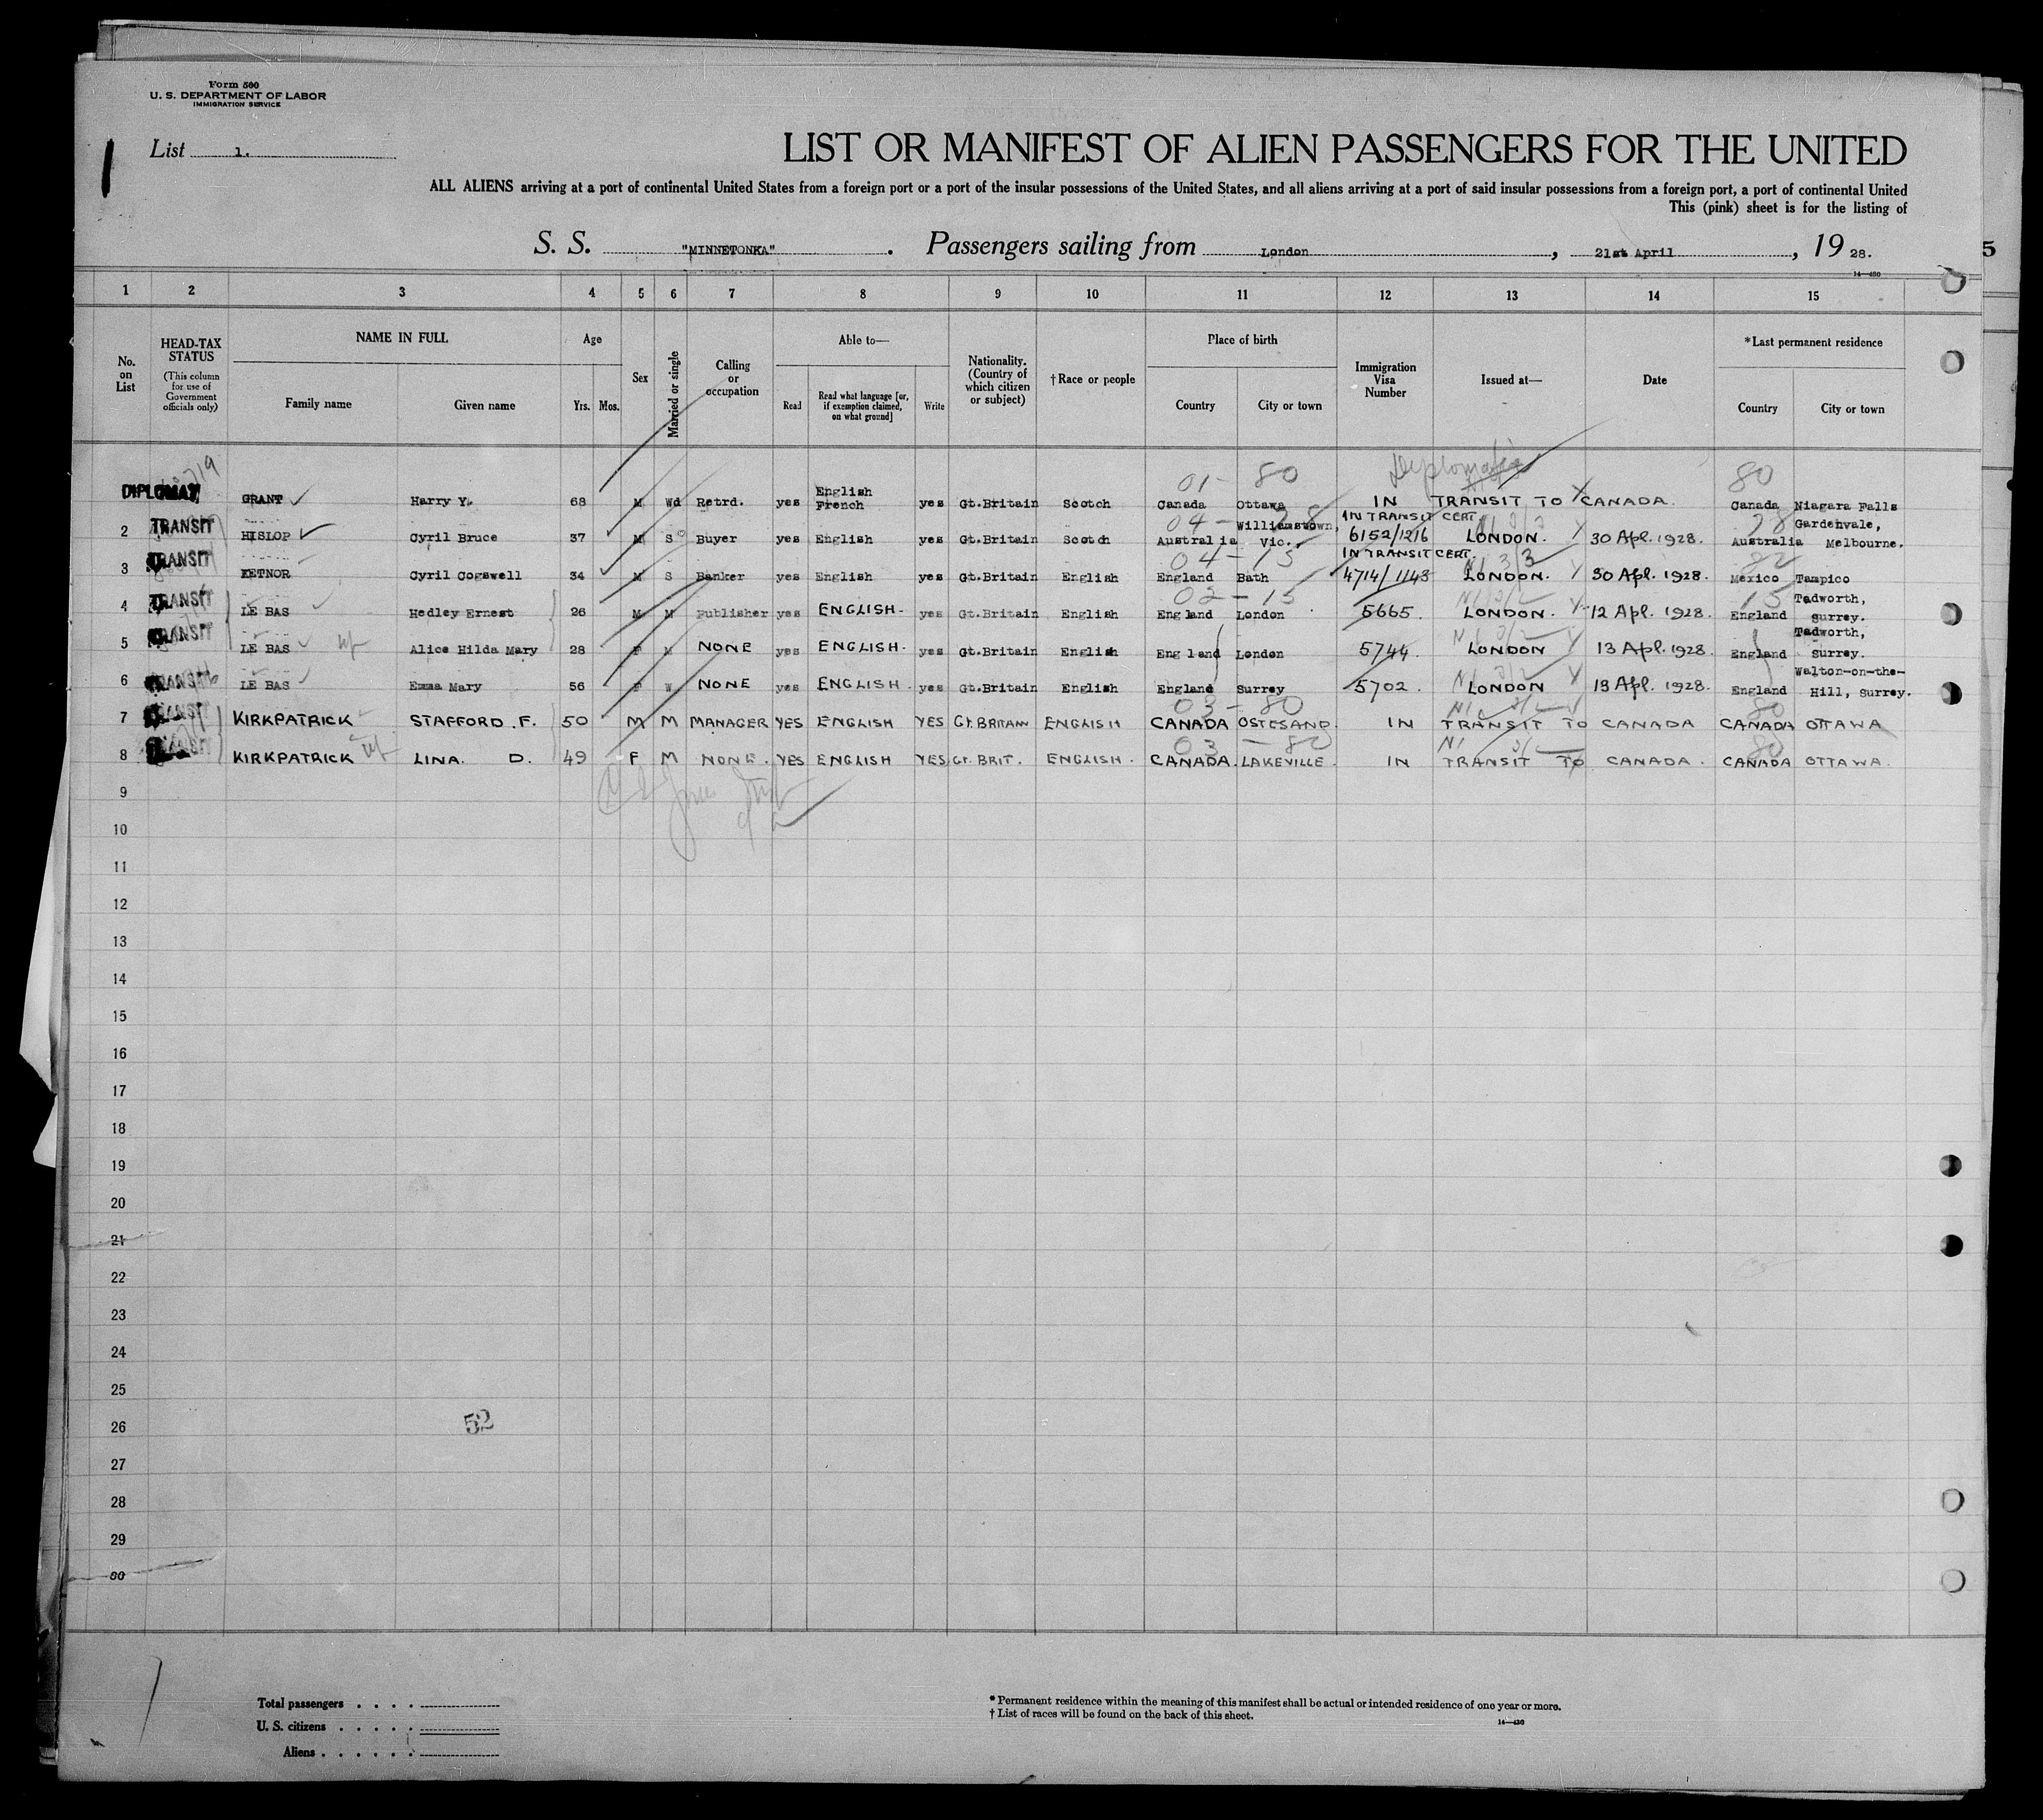 Form 500
U. S. DEPARTMENT OF LABOR
IMMIGRATION SERVICE
List 1.
LIST OR MANIFEST OF ALIEN PASSENGERS FOR THE UNITED
ALL ALIENS arriving at a port of continental United States from a foreign port or a port of the insular possessions of the United States, and all aliens arriving at a port of said insular possessions from a foreign port, a port of continental United
This (pink) sheet is for the listing of
S. S. "MINNETONKA" . Passengers sailing from London , 21st April , 19 28.
5
14—430
1 2 3 4 5 6 7 8 9 10 11 12 13 14 15
No. on List
HEAD-TAX STATUS
(This column for use of Government officials only)
NAME IN FULL
Family name Given name
Age
Yrs. Mos.
Sex
Married or single
Calling or occupation
Able to—
Read
Read what language [or, if exemption claimed, on what ground]
Write
Nationality. (Country of which citizen or subject)
†Race or people
Place of birth
Country City or town
Immigration Visa Number
Issued at—
Date
*Last permanent residence
Country City or town
01- 80 Diplomatic 80
DIPLOMAT GRANT Harry Y. 68 M Wd Retrd. yes English French yes Gt.Britain Scotch Canada Ottawa IN TRANSIT TO CANADA. Canada Niagara Falls
2 TRANSIT HISLOP Cyril Bruce 37 M S Buyer yes English yes Gt.Britain Scotch Australia Williamstown, Vic. IN TRANSIT CERT. 6152/1216 LONDON. 30 Apl. 1928. Australia Gardenvale, Melbourne.
04 - 15
3 TRANSIT Cyril Cogswell 34 M S Banker yes English yes Gt.Britain English England Bath IN TRANSIT CERT. 4714/1143 LONDON. 30 Apl. 1928. Mexico Tampico
02 - 15 15
4 TRANSIT LE BAS Hedley Ernest 26 M M Publisher yes ENGLISH. yes Gt.Britain English England London 5665. LONDON. 12 Apl. 1928. England Tadworth, Surrey.
5 TRANSIT LE BAS Alice Hilda Mary 28 F M NONE yes ENGLISH. yes Gt.Britain English England London 5744. LONDON 13 Apl. 1928. England Tadworth, Surrey.
6 TRANSIT LE BAS Emma Mary 56 F W NONE yes ENGLISH. yes Gt.Britain English England Surrey 5702. LONDON 13 Apl. 1928. England Walton-on-the-Hill, Surrey.
03 - 80 80
7 TRANSIT KIRKPATRICK STAFFORD .F. 50 M M MANAGER YES ENGLISH YES Gt. BRITAIN ENGLISH CANADA IN TRANSIT TO CANADA CANADA OTTAWA
03 - 80 80
8 TRANSIT KIRKPATRICK LINA. D. 49 F M NONE. YES ENGLISH YES Gt. BRIT. ENGLISH. CANADA. LAKEVILLE. IN TRANSIT TO CANADA. CANADA OTTAWA.
9
10
11
12
13
14
15
16
17
18
19
20
21
22
23
24
25
26
52
27
28
29
30
Total passengers . . . .
U. S. citizens . . . . .
Aliens . . . . . .
* Permanent residence within the meaning of this manifest shall be actual or intended residence of one year or more.
† List of races will be found on the back of this sheet.
14—430